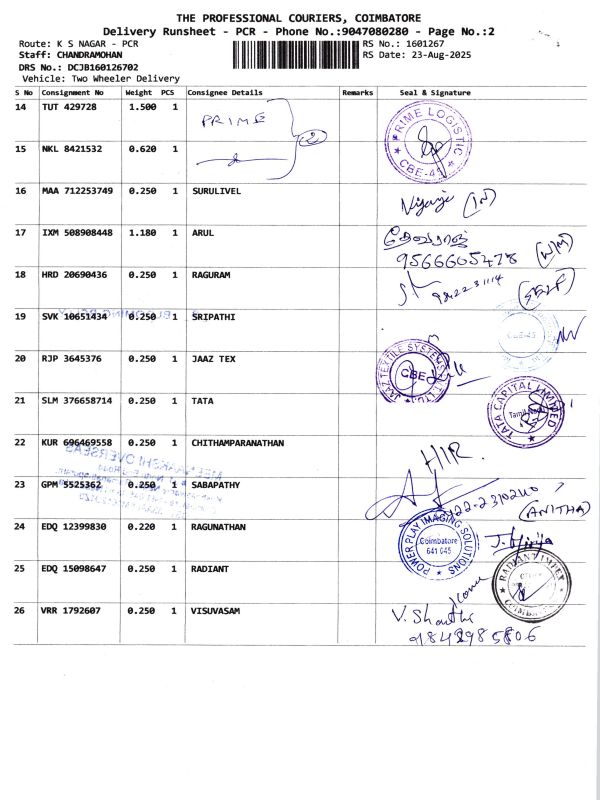 THE PROFESSIONAL COURIERS, COIMBATORE
Delivery Runsheet - PCR - Phone No.:9047080280 - Page No.:2
Route: K S NAGAR - PCR
RS No.: 1601267
Staff: CHANDRAMOHAN
RS Date: 23-Aug-2025
DRS No.: DCJB160126702
Vehicle: Two Wheeler Delivery
S No Consignment No Weight PCS Consignee Details Remarks Seal & Signature
14 TUT 429728 1.500 1 PRIME
2
PRIME LOGISTIC CBE-45
15 NKL 8421532 0.620 1
16 MAA 712253749 0.250 1 SURULIVEL
17 IXM 508908448 1.180 1 ARUL
தேவராஜ்
18 HRD 20690436 0.250 1 RAGURAM
(SELF)
19 SVK 10651434 0.250 1 SRIPATHI
CBE-45
20 RJP 3645376 0.250 1 JAAZ TEX
JAAZ TEXTILE SYSTEMS CBE
21 SLM 376658714 0.250 1 TATA
TATA CAPITAL LIMITED
Tamil Nadu
22 KUR 696469558 0.250 1 CHITHAMPARANATHAN
OVERSEAS
23 GPM 5525362 0.250 1 SABAPATHY
(ANITHA)
24 EDQ 12399830 0.220 1 RAGUNATHAN
POWER PLAY IMAGING SOLUTIONS
Coimbatore
641 045
25 EDQ 15098647 0.250 1 RADIANT
RADIANT IMPEX
26 VRR 1792607 0.250 1 VISUVASAM
V. Shanthi